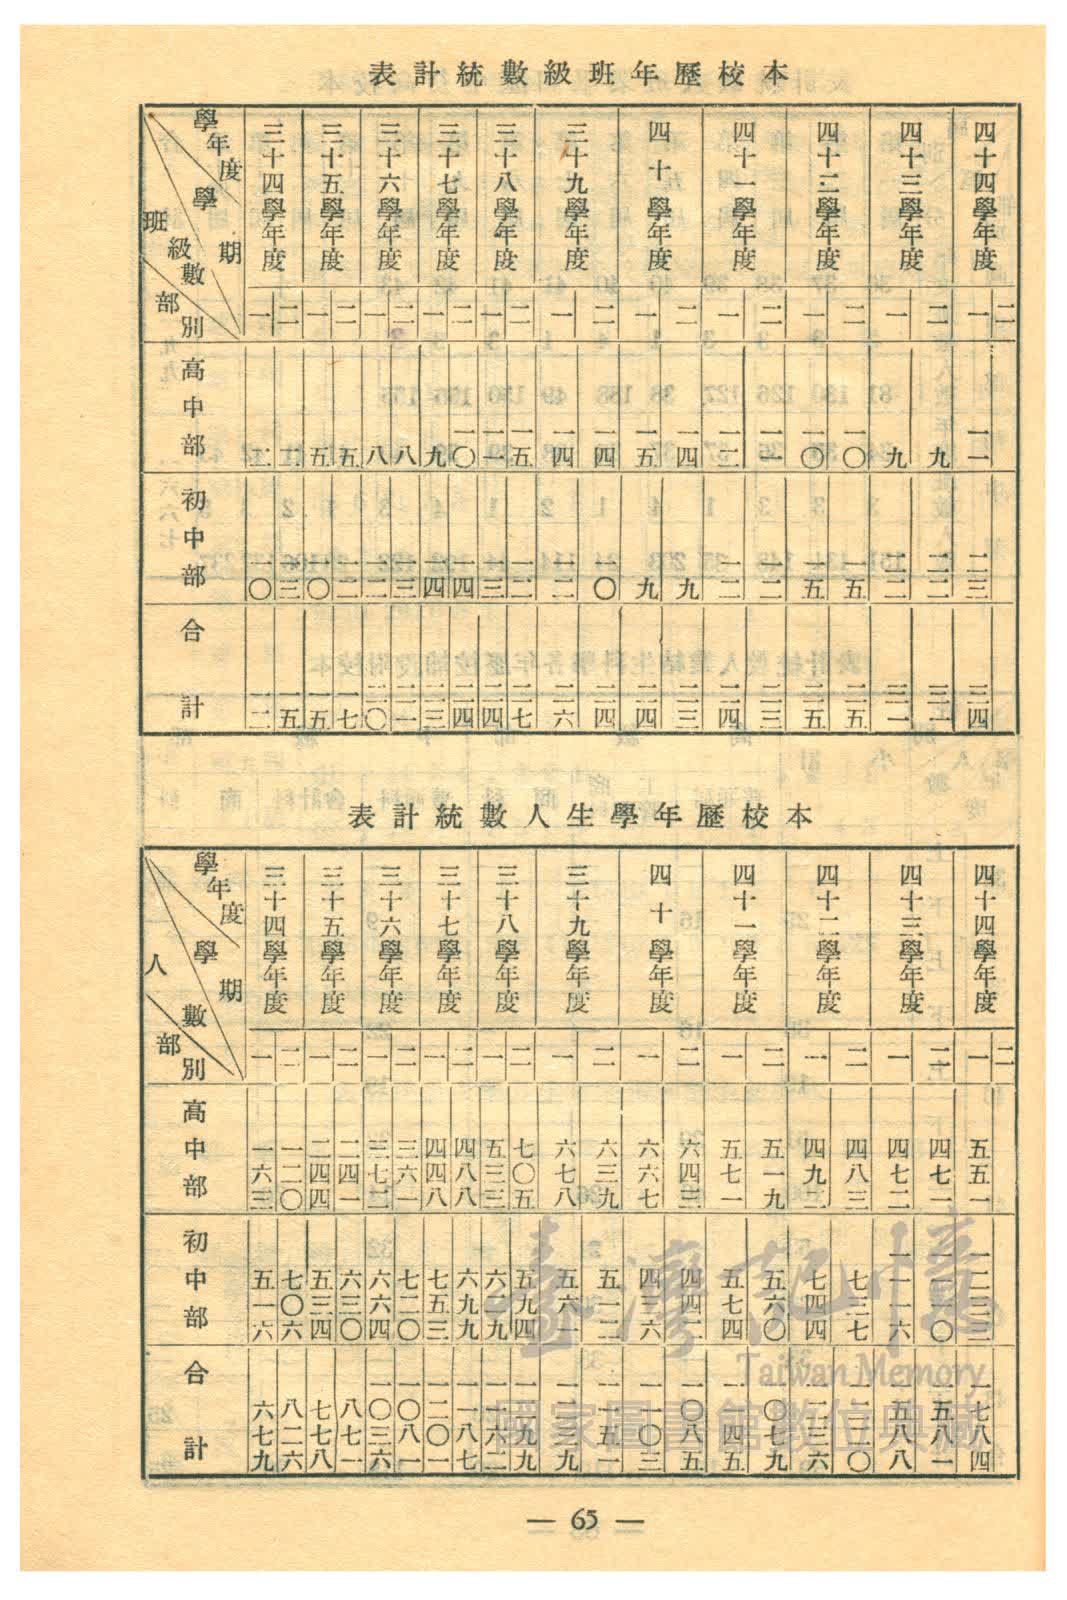 本校歷年班級數統計表
學年度 學期 班級數 部別
三十四學年度 三十五學年度 三十六學年度 三十七學年度 三十八學年度 三十九學年度 四十學年度 四十一學年度 四十二學年度 四十三學年度 四十四學年度
一 二 一 二 一 二 一 二 一 二 一 二 一 二 一 二 一 二 一 二 一 二
高中部 二 二 五 五 八 八 九 一〇 一一 一五 一四 一四 一五 一四 一二 一一 一〇 一〇 九 九 一一
初中部 一〇 一三 一〇 一二 一二 一三 一四 一四 一三 一二 一二 一〇 九 九 一二 一二 一五 一五 二二 二二 二三
合計 一二 一五 一五 一七 二〇 二一 二三 二四 二四 二七 二六 二四 二四 二三 二四 二三 二五 二五 三一 三一 三四
本校歷年學生人數統計表
學年度 學期 人數 部別
三十四學年度 三十五學年度 三十六學年度 三十七學年度 三十八學年度 三十九學年度 四十學年度 四十一學年度 四十二學年度 四十三學年度 四十四學年度
一 二 一 二 一 二 一 二 一 二 一 二 一 二 一 二 一 二 一 二 一 二
高中部 一六三 一二〇 二四四 二四一 三七二 三六一 四四八 四八八 五三三 七〇五 六七八 六三九 六六七 六四三 五七一 五一九 四九二 四八三 四七二 四七一 五五一
初中部 五一六 七〇六 五三四 六三〇 六六四 七二〇 七五三 六九九 六二九 五九四 五六一 五一二 四三六 四四二 五七四 五六〇 七四四 七三七 一一一六 一一一〇 一二三三
合計 六七九 八二六 七七八 八七一 一〇三六 一〇八一 一二〇一 一一八七 一一六二 一二九九 一二三九 一一五一 一一〇三 一〇八五 一一四五 一〇七九 一二三六 一二二〇 一五八八 一五八一 一七八四
臺灣記憶
Taiwan Memory
國家圖書館數位典藏
— 65 —